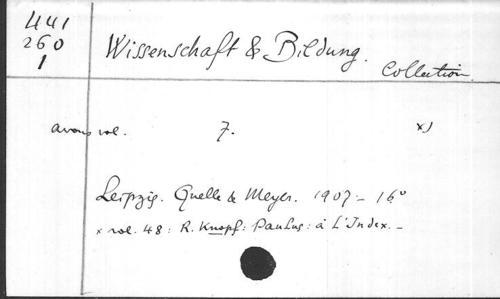 441
260
1
Wissenschaft & Bildung.
Collection
avons vol. 7. x)
Leipzig. Quelle & Meyer. 1907 - 16°
x vol. 48 : R. Knopf : Paulus : à L'Index. -